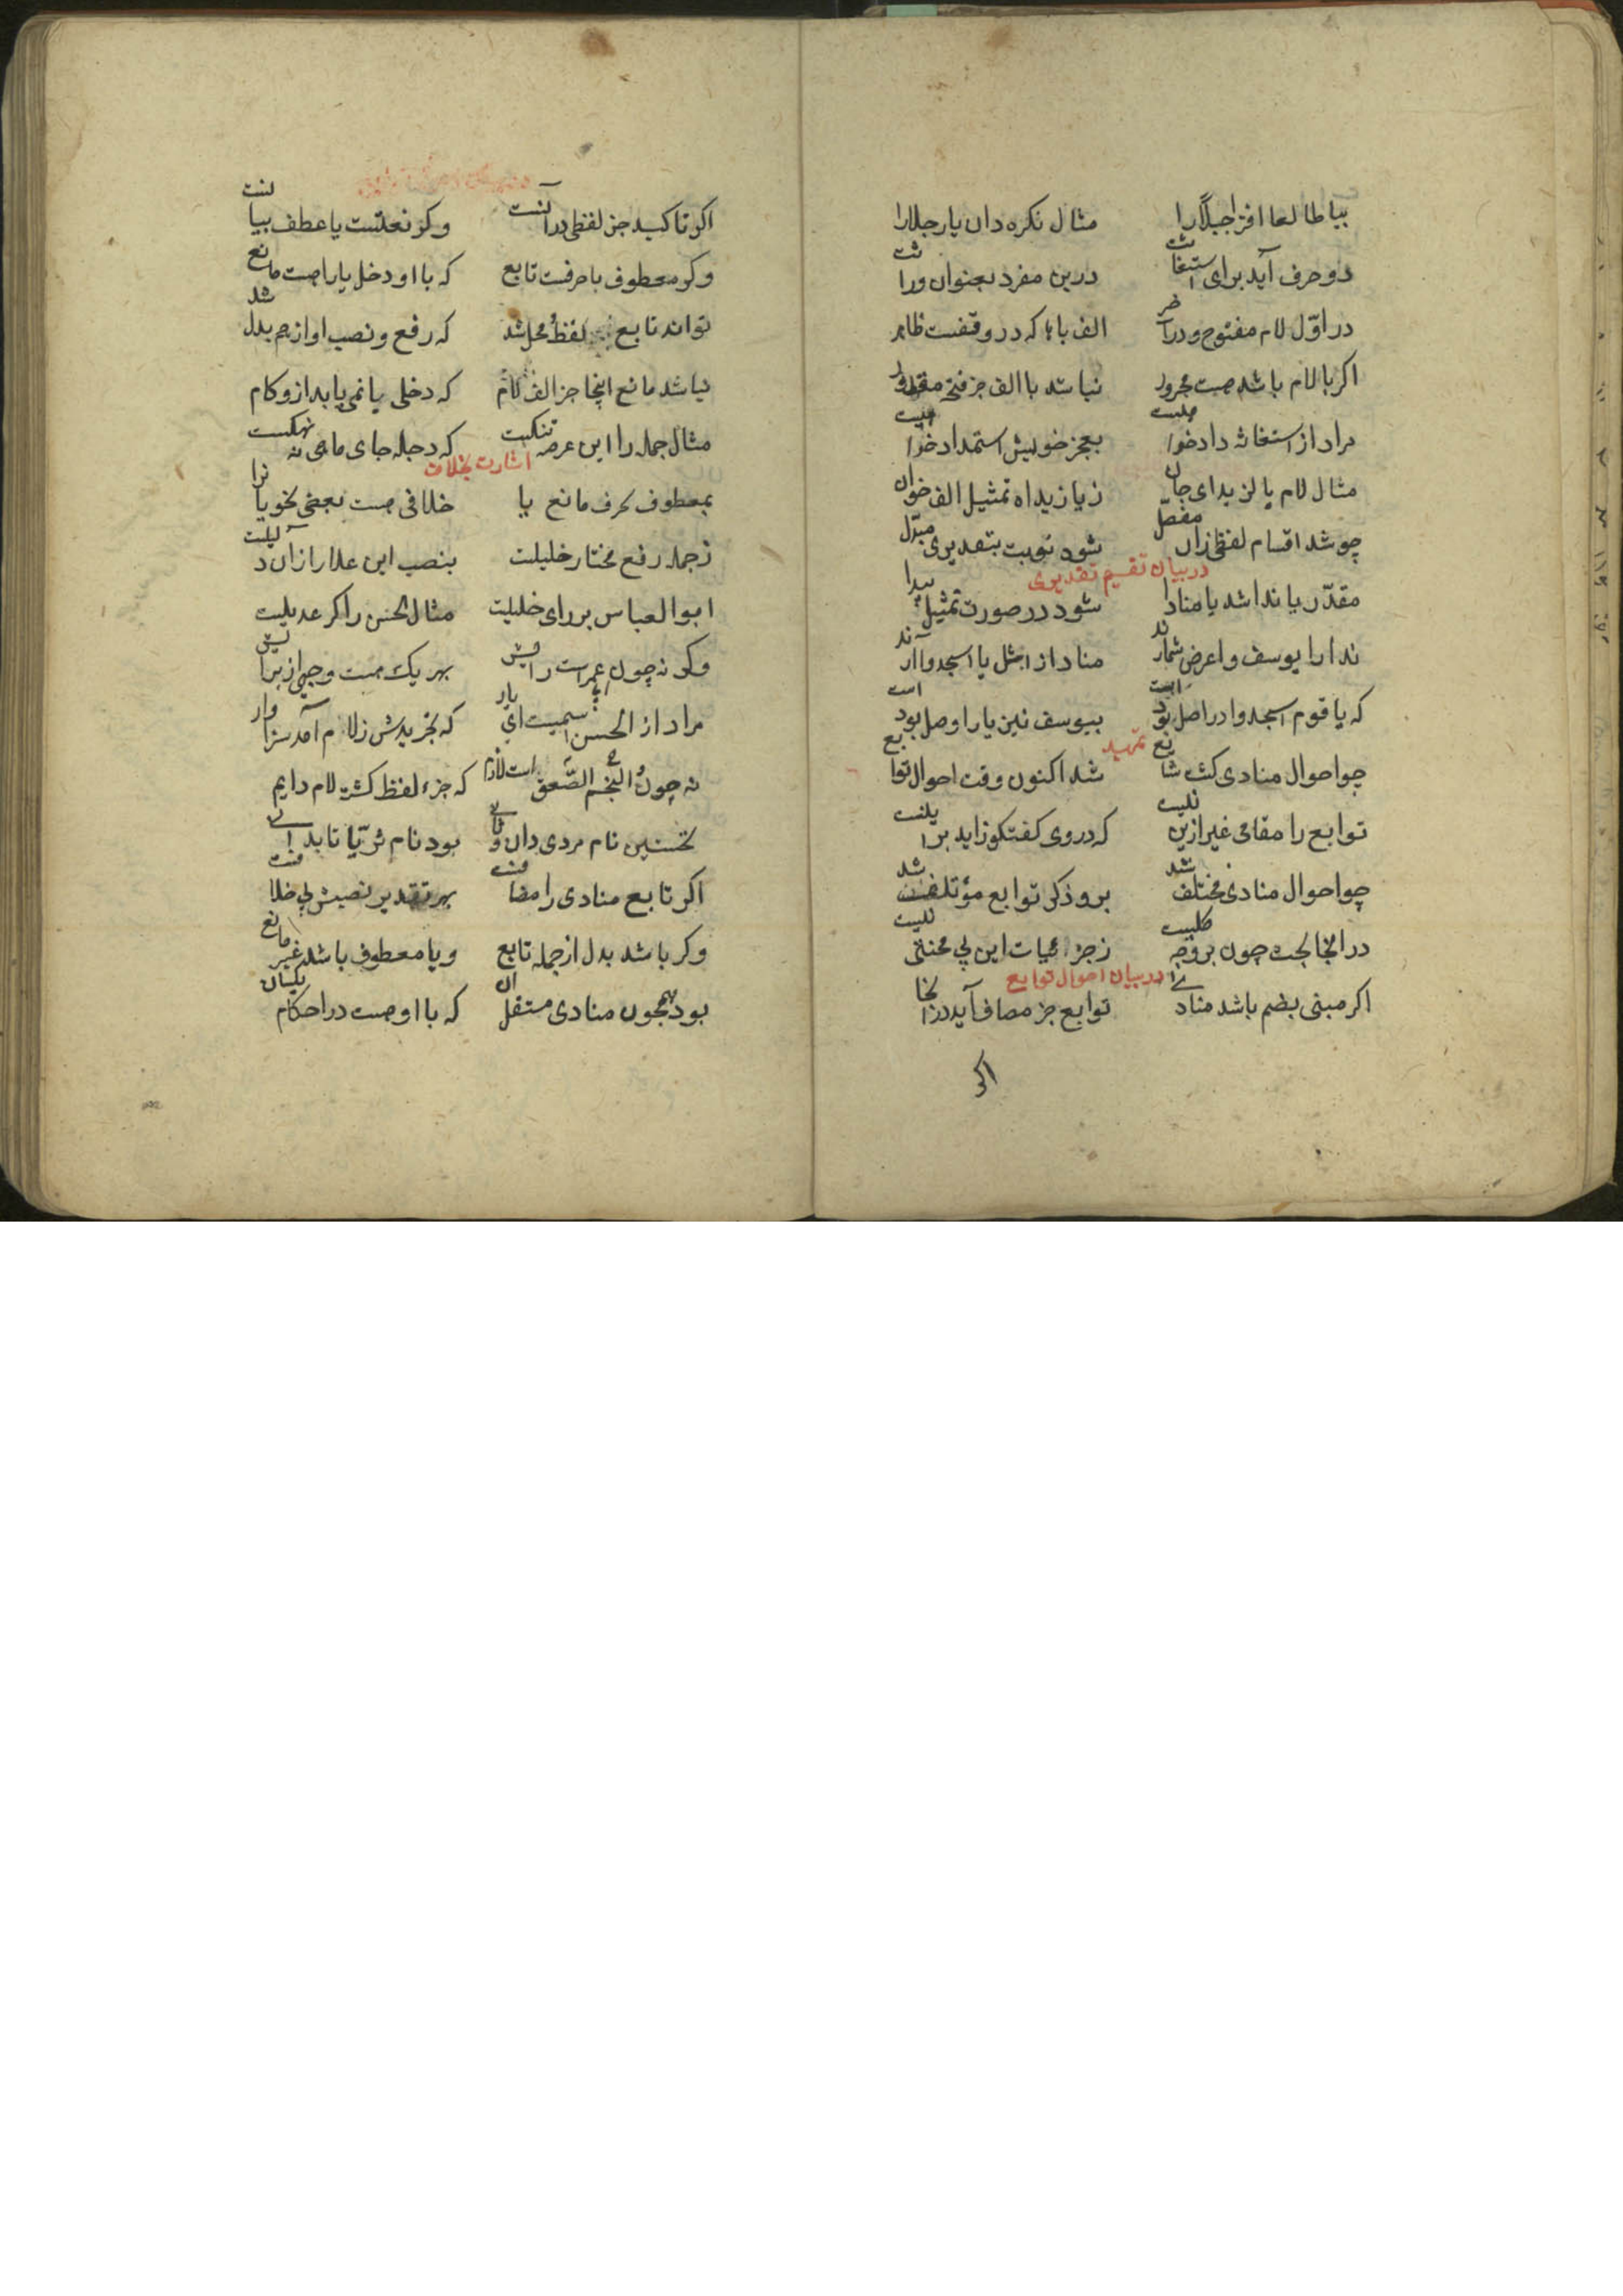 بیا طالعا افزا جبلاً را مثال نکره دان یا رجلا را
دو حرف آید برای استغاثت درین مفرد بعنوان وراثت
در اوّل لام مفتوح ودر آخر الف باها که در وقفست ظاهر
اکر با لام باشد هست مجرور نباشد با الف جز فتحه مقدور
مراد از استغاثه دادخواهیست بعجز خویش استمداد خواهیست
مثال لام یا لزید ای جان زیا زیداه تمثیل الف خوان
چو شد اقسام لفظی زان مفصّل شود نوبت بتقدیری مبدّل
در بیان تقسیم تقدیری
مقدّر یا ندا شد یا منادا شود در صورت تمثیل پیدا
ندا را یوسف واعرض شمارند منادا از مثل یا اسجدوا آرند
که یا قوم اسجدوا در اصل بود است بیوسف نیز یا را وصل بود است
تمهید
چو احوال منادی کشت شایع شد اکنون وقت احوال توابع
توابع را مقامی غیر ازین نیست که در وی کفتکو زاید برین نیست
چو احوال منادی مختلف شد برو ذکر توابع مؤتلف شد
در انجا بحث چون بر وجه کلیست زجزئیات این پی محنتی نیست
در بیان احوال توابع
اکر مبنی بضم باشد منادی توابع جز مضاف آید در انجا
اکر
اکر تاکید جز لفظی در آنست وکر نعتست یا عطف بیانست
وکر معطوف با حرفست تابع که با او دخل یا را هست مانع
تواند تابع لفظ ومحل شد که رفع ونصب او از هم بدل شد
نباشد مانع اینجا جز الف لام که دخلی یا نمی یابد ازو کام
مثال جمله را این عرصه تنکیست که دجله جای ماهی نه نهنکیست
اشارت بخلاف
بمعطوف بحرف مانع یا خلافی هست بعضی نحویان را
زجمله رفع مختار خلیلت بنصب ابن علا را زان دلیلت
ابو العباس بر رای خلیلت مثال الحسن را کر عدیلت
وکر نه چون عمر است راییش بهر یک هست وجهی از برایش
مراد از الحسن اسمیست ای یار که تجریدش زلام آمد سزاوار
نه چون النجم والصّعق است لازم که جزء لفظ کشته لام دایم
نخستین نام مردی دان وثانی بود نام ثریّا تا بدانی
اکر تابع منادی را مضافست بهر تقدیر نصبش بی خلافست
وکر باشد بدل از جمله تابع ویا معطوف باشد غیر مانع
بود همچون منادی مستقل آن که با او هست در احکام یکسان